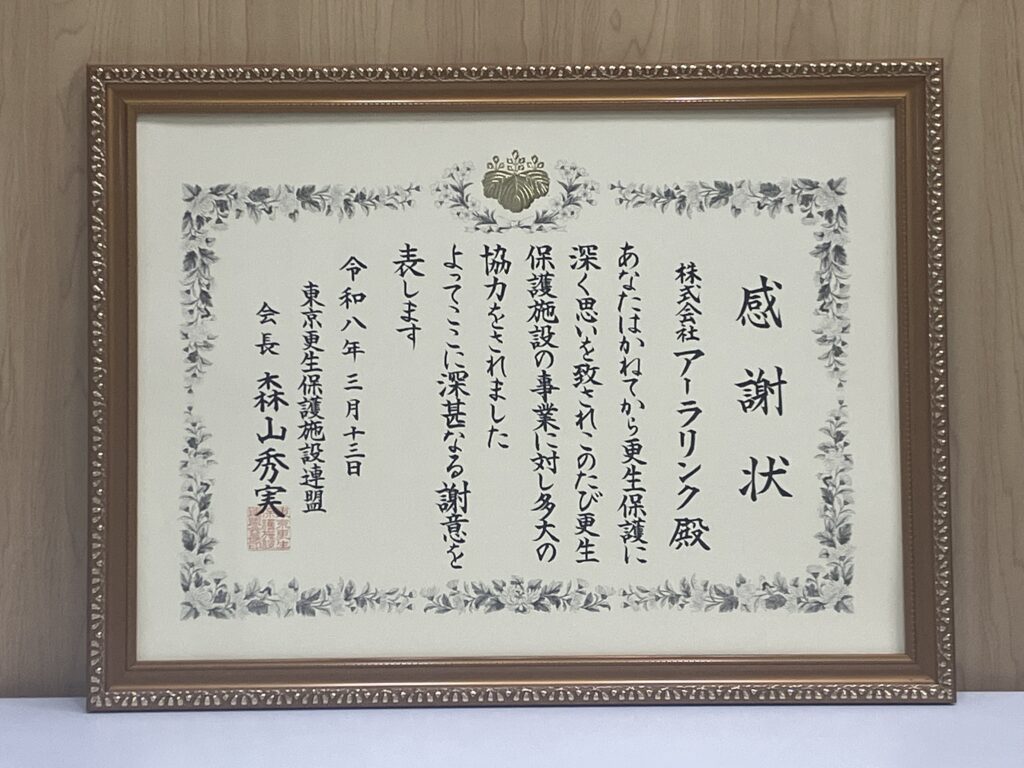 感謝状
株式会社アーラリンク殿
あなたはかねてから更生保護に
深く思いを致されこのたび更生
保護施設の事業に対し多大の
協力をされました
よってここに深甚なる謝意を
表します
令和八年三月十三日
東京更生保護施設連盟
会長 森山秀実